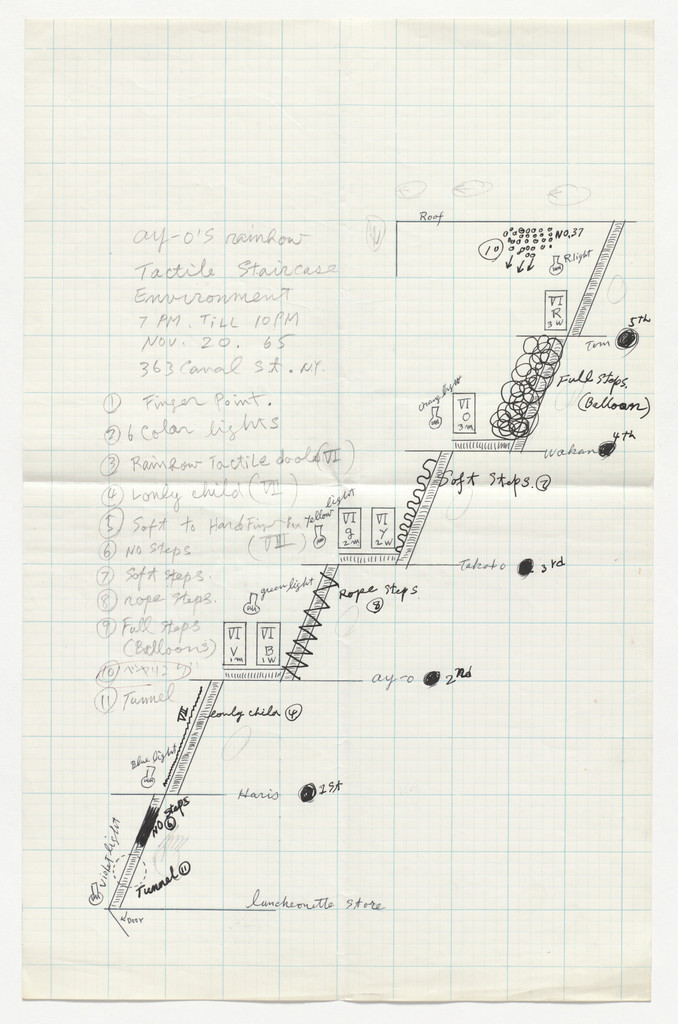 ay-o's rainbow
Tactile Staircase
Environment
7 PM. TILL 10 PM
NOV. 20. 65
363 Canal St. N.Y.
① Finger Point.
② 6 Color lights
③ Rainbow Tactile (VI)
④ Lonly child (VI)
⑤ Soft to Hard
(VII)
⑥ NO Steps
⑦ Soft Steps.
⑧ rope steps.
⑨ Full Steps
(Balloons)
⑩
⑪ Tunnel
Roof
10
NO.37
R.light
VI
R
3W
5th
Tom
Full Steps.
(Balloon)
Orange light
VI
O
3m
4th
Wakan
Soft Steps. ⑦
Yellow light
VI
g
2m
VI
Y
2W
Takato
3rd
Rope Steps
⑧
green light
VI
V
1m
VI
B
1W
ay-o
2nd
VII
Lonly child ④
Blue light
Haris
1st
NO Steps
⑥
Violet light
Tunnel ⑪
Door
luncheonette store